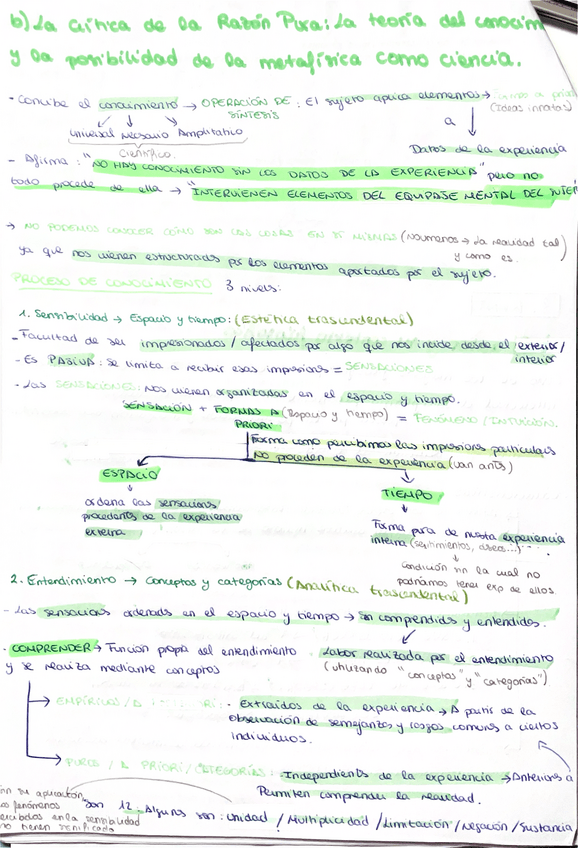 b) La crítica de la Razón Pura: La teoría del conocim
y la posibilidad de la metafísica como ciencia.
- Concibe el conocimiento → OPERACIÓN DE SÍNTESIS : El sujeto aplica elementos →
(Ideas innatas)
Universal Necesario Ampliativo
a
Científico.
Datos de la experiencia
- Afirma: "NO HAY CONOCIMIENTO SIN LOS DATOS DE LA EXPERIENCIA" pero no
todo procede de ella → "INTERVIENEN ELEMENTOS DEL EQUIPASE MENTAL DEL SUJE
→ NO PODEMOS CONOCER CÓMO SON LAS COSAS EN SÍ MISMAS (Noumenos → La realidad tal
y como es.)
ya que nos vienen estructurados por los elementos aportados por el sujeto.
PROCESO DE CONOCIMIENTO 3 niveles:
1. Sensibilidad → Espacio y tiempo: (Estética trascendental)
- Facultad de ser impresionados / afectados por algo que nos incide, desde el exterior /
interior
- Es PASIVA: se limita a recibir esas impresiones = SENSACIONES
- Las SENSACIONES: Nos vienen organizadas en el espacio y tiempo.
SENSACIÓN + FORMAS A PRIORI (Espacio y tiempo) = FENÓMENO / INTUICIÓN.
Forma como percibimos las impresiones particulares
No proceden de la experiencia (van antes)
ESPACIO
TIEMPO
ordena las sensaciones
procedentes de la experiencia
externa.
Forma pura de nuestra experiencia
interna (sentimientos, deseos...)
Condición sin la cual no
podríamos tener exp de ellos
2. Entendimiento → Conceptos y categorías (Analítica trascendental)
- Las sensaciones ordenadas en el espacio y tiempo → Son comprendidas y entendidas.
- COMPRENDER → Función propia del entendimiento
y se realiza mediante conceptos
Labor realizada por el entendimiento
(utilizando "conceptos" y "categorías")
→ EMPÍRICOS / A : - Extraídos de la experiencia → A partir de la
observación de semejanzas y rasgos comunes a ciertos
individuos.
→ PUROS / A PRIORI / CATEGORÍAS : Independients de la experiencia → Anteriores a
Permiten comprender la realidad.
Son 12. Algunas son: Unidad / Multiplicidad / Limitación / Negación / Sustancia
ón su aplicación
os fenómenos
ercibidos en la sensibilidad
no tienen significado